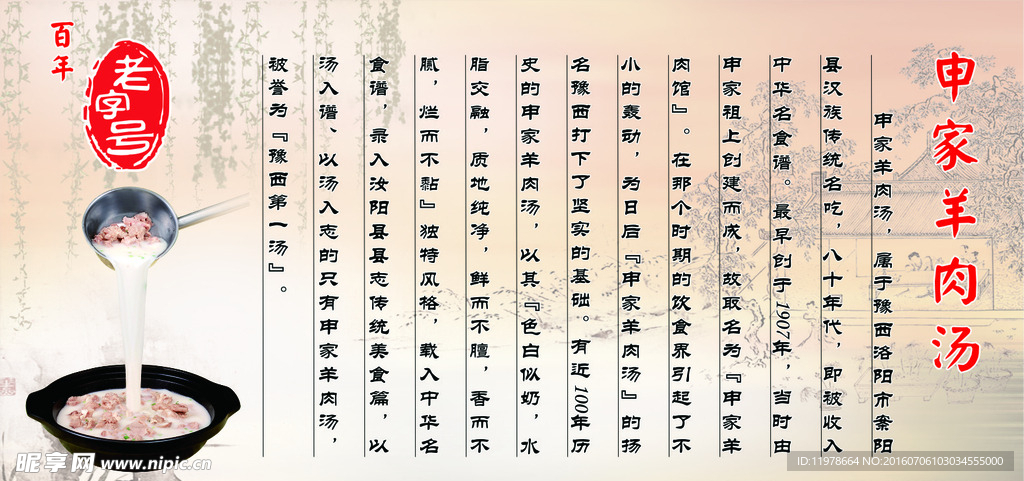 申家羊肉汤
申家羊肉汤，属于豫西洛阳市案阳
县汉族传统名吃，八十年代，即被收入
中华名食谱。最早创于1907年，当时由
申家祖上创建而成，故取名为『申家羊
肉馆』。在那个时期的饮食界引起了不
小的轰动，为日后『申家羊肉汤』的扬
名豫西打下了坚实的基础。有近100年历
史的申家羊肉汤，以其『色白似奶，水
脂交融，质地纯净，鲜而不膻，香而不
腻，烂而不黏』独特风格，载入中华名
食谱，录入汝阳县县志传统美食篇，以
汤入谱、以汤入志的只有申家羊肉汤，
被誉为『豫西第一汤』。
百年
老字号
昵享网 www.nipic.cn
ID:11978664 NO:20160706103034555000